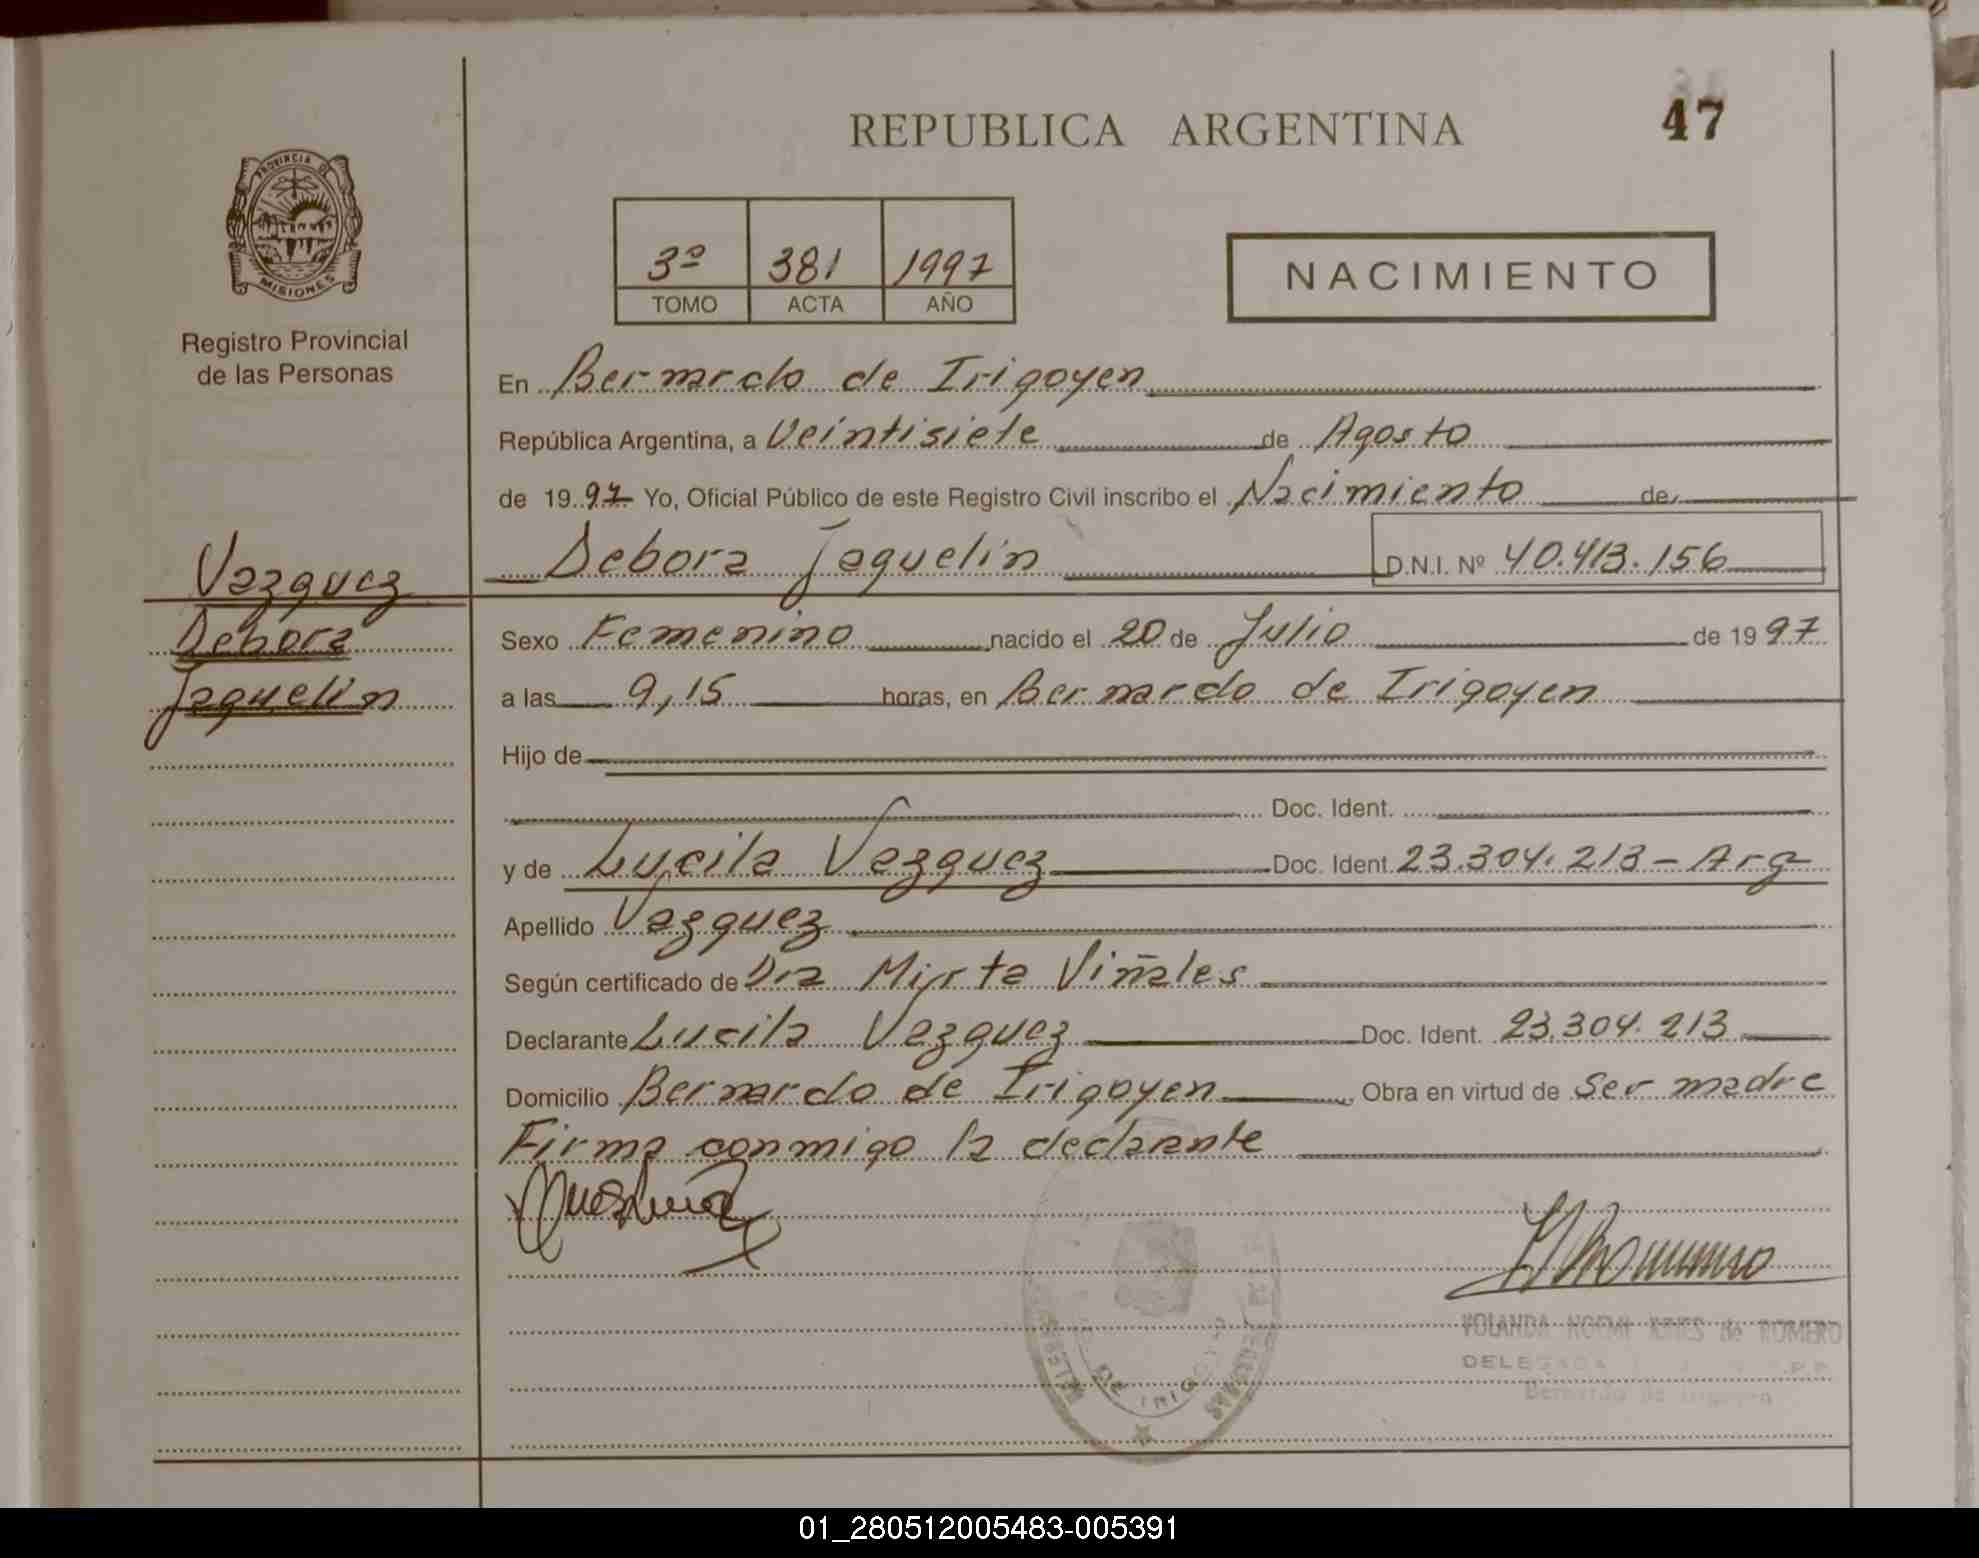 REPUBLICA ARGENTINA
47
PROVINCIA DE
MISIONES
Registro Provincial
de las Personas
3º 381 1997
TOMO ACTA AÑO
NACIMIENTO
En Bernardo de Irigoyen
República Argentina, a Veintisiete de Agosto
de 1997 Yo, Oficial Público de este Registro Civil inscribo el Nacimiento de
Debora Jaquelin D.N.I. Nº 40.413.156
Vazquez
Debora
Jaquelin
Sexo Femenino nacido el 20 de Julio de 1997
a las 9,15 horas, en Bernardo de Irigoyen
Hijo de
Doc. Ident.
y de Lucila Vazquez Doc. Ident. 23.304.213 - Arg
Apellido Vazquez
Según certificado de Dra Mirta Viñales
Declarante Lucila Vazquez Doc. Ident. 23.304.213
Domicilio Bernardo de Irigoyen Obra en virtud de ser madre
Firma conmigo la declarante
YOLANDA NOEMI de ROMERO
DELEGADA
Bernardo de Irigoyen
01_280512005483-005391